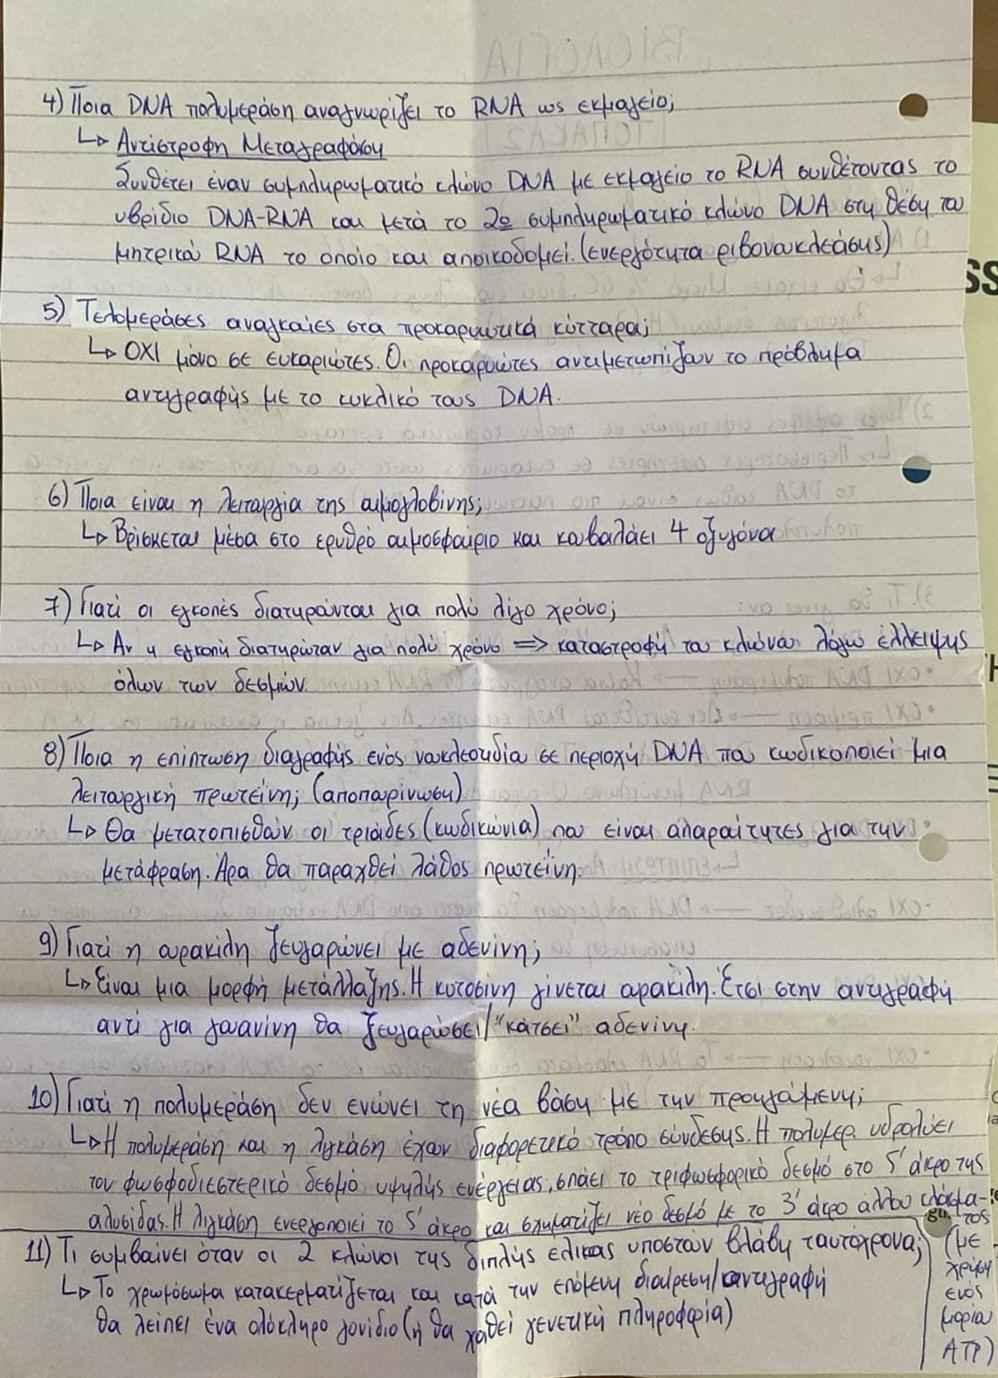 4) Ποια DNA πολυμεράση αναγνωρίζει το RNA ως εκμαγείο;
↳ Αντίστροφη Μεταγραφάση
Συνθέτει έναν συμπληρωματικό κλώνο DNA με εκμαγείο το RNA συνθέτοντας το
υβρίδιο DNA-RNA και μετά το 2ο συμπληρωματικό κλώνο DNA στη θέση του
μητρικού RNA το οποίο και αποικοδομεί. (ενεργότητα ριβονουκλεάσης)
5) Τελομεράσες αναγκαίες στα προκαρυωτικά κύτταρα;
↳ ΟΧΙ μόνο σε ευκαριώτες. Οι προκαρυώτες αντιμετωπίζουν το πρόβλημα
αντιγραφής με το κυκλικό τους DNA.
6) Ποια είναι η λειτουργία της αιμογλοβίνης;
↳ Βρίσκεται μέσα στο ερυθρό αιμοσφαίριο και κουβαλάει 4 οξυγόνα
7) Γιατί οι εγκοπές διατηρούνται για πολύ λίγο χρόνο;
↳ Αν η εγκοπή διατηρώταν για πολύ χρόνο ⇒ καταστροφή του κλώνου λόγω έλλειψης
όλων των δεσμών.
8) Ποια η επίπτωση διαγραφής ενός νουκλεοτιδίου σε περιοχή DNA που κωδικοποιεί μια
λειτουργική πρωτεΐνη; (αποπουρίνωση)
↳ Θα μετατοπισθούν οι τριάδες (κωδικώνια) που είναι απαραίτητες για την
μετάφραση. Άρα θα παραχθεί λάθος πρωτεΐνη.
9) Γιατί η ουρακίλη ζευγαρώνει με αδενίνη;
↳ Είναι μια μορφή μετάλλαξης. Η κυτοσίνη γίνεται ουρακίλη. Έτσι στην αντιγραφή
αντί για γουανίνη θα ζευγαρώσει/"κάτσει" αδενίνη.
10) Γιατί η πολυμεράση δεν ενώνει τη νέα βάση με την προηγούμενη;
↳ Η πολυμεράση και η λιγκάση έχουν διαφορετικό τρόπο σύνδεσης. Η πολυμερ. υδρολύει
τον φωσφοδιεστερικό δεσμό υψηλής ενέργειας, σπάει το τριφωσφορικό δεσμό στο 5' άκρο της
αλυσίδας. Η λιγκάση ενεργοποιεί το 5' άκρο και σχηματίζει νέο δεσμό με το 3' άκρο άλλου κλάσμα-
τος
(με
χρήση
ενός
μορίου
ATP)
11) Τι συμβαίνει όταν οι 2 κλώνοι της διπλής έλικας υποστούν βλάβη ταυτόχρονα;
↳ Το χρωμόσωμα κατακερματίζεται και κατά την επόμενη διαίρεση/αντιγραφή
θα λείπει ένα ολόκληρο γονίδιο (ή θα χαθεί γενετική πληροφορία)